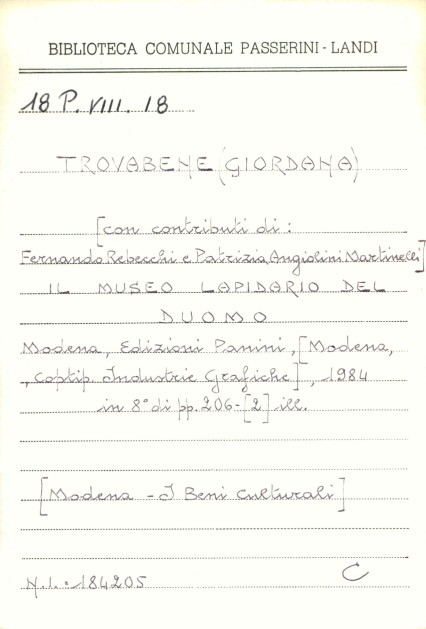 BIBLIOTECA COMUNALE PASSERINI-LANDI
18 P. VIII. 18
TROVABENE (GIORDANA)
[con contributi di:
Fernando Rebecchi e Patrizia Angiolini Martinelli]
IL MUSEO LAPIDARIO DEL
DUOMO
Modena, Edizioni Panini, [Modena,
, coptip. Industrie Grafiche], 1984
in 8° di pp. 206-[2] ill.
[Modena - I Beni Culturali]
N.I.: 184205
C